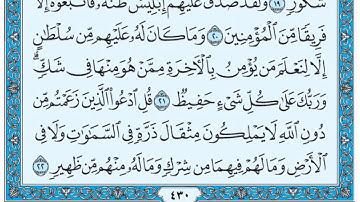 شَكُورٍ ١٩ وَلَقَدْ صَدَّقَ عَلَيْهِمْ إِبْلِيسُ ظَنَّهُۥ فَٱتَّبَعُوهُ إِلَّا
فَرِيقًا مِّنَ ٱلْمُؤْمِنِينَ ٢٠ وَمَا كَانَ لَهُۥ عَلَيْهِم مِّن سُلْطَٰنٍ
إِلَّا لِنَعْلَمَ مَن يُؤْمِنُ بِٱلْءَاخِرَةِ مِمَّنْ هُوَ مِنْهَا فِى شَكٍّ
وَرَبُّكَ عَلَىٰ كُلِّ شَىْءٍ حَفِيظٌ ٢١ قُلِ ٱدْعُوا۟ ٱلَّذِينَ زَعَمْتُم مِّن
دُونِ ٱللَّهِ لَا يَمْلِكُونَ مِثْقَالَ ذَرَّةٍ فِى ٱلسَّمَٰوَٰتِ وَلَا فِى
ٱلْأَرْضِ وَمَا لَهُمْ فِيهِمَا مِن شِرْكٍ وَمَا لَهُۥ مِنْهُم مِّن ظَهِيرٍ ٢٢
٤٣٠